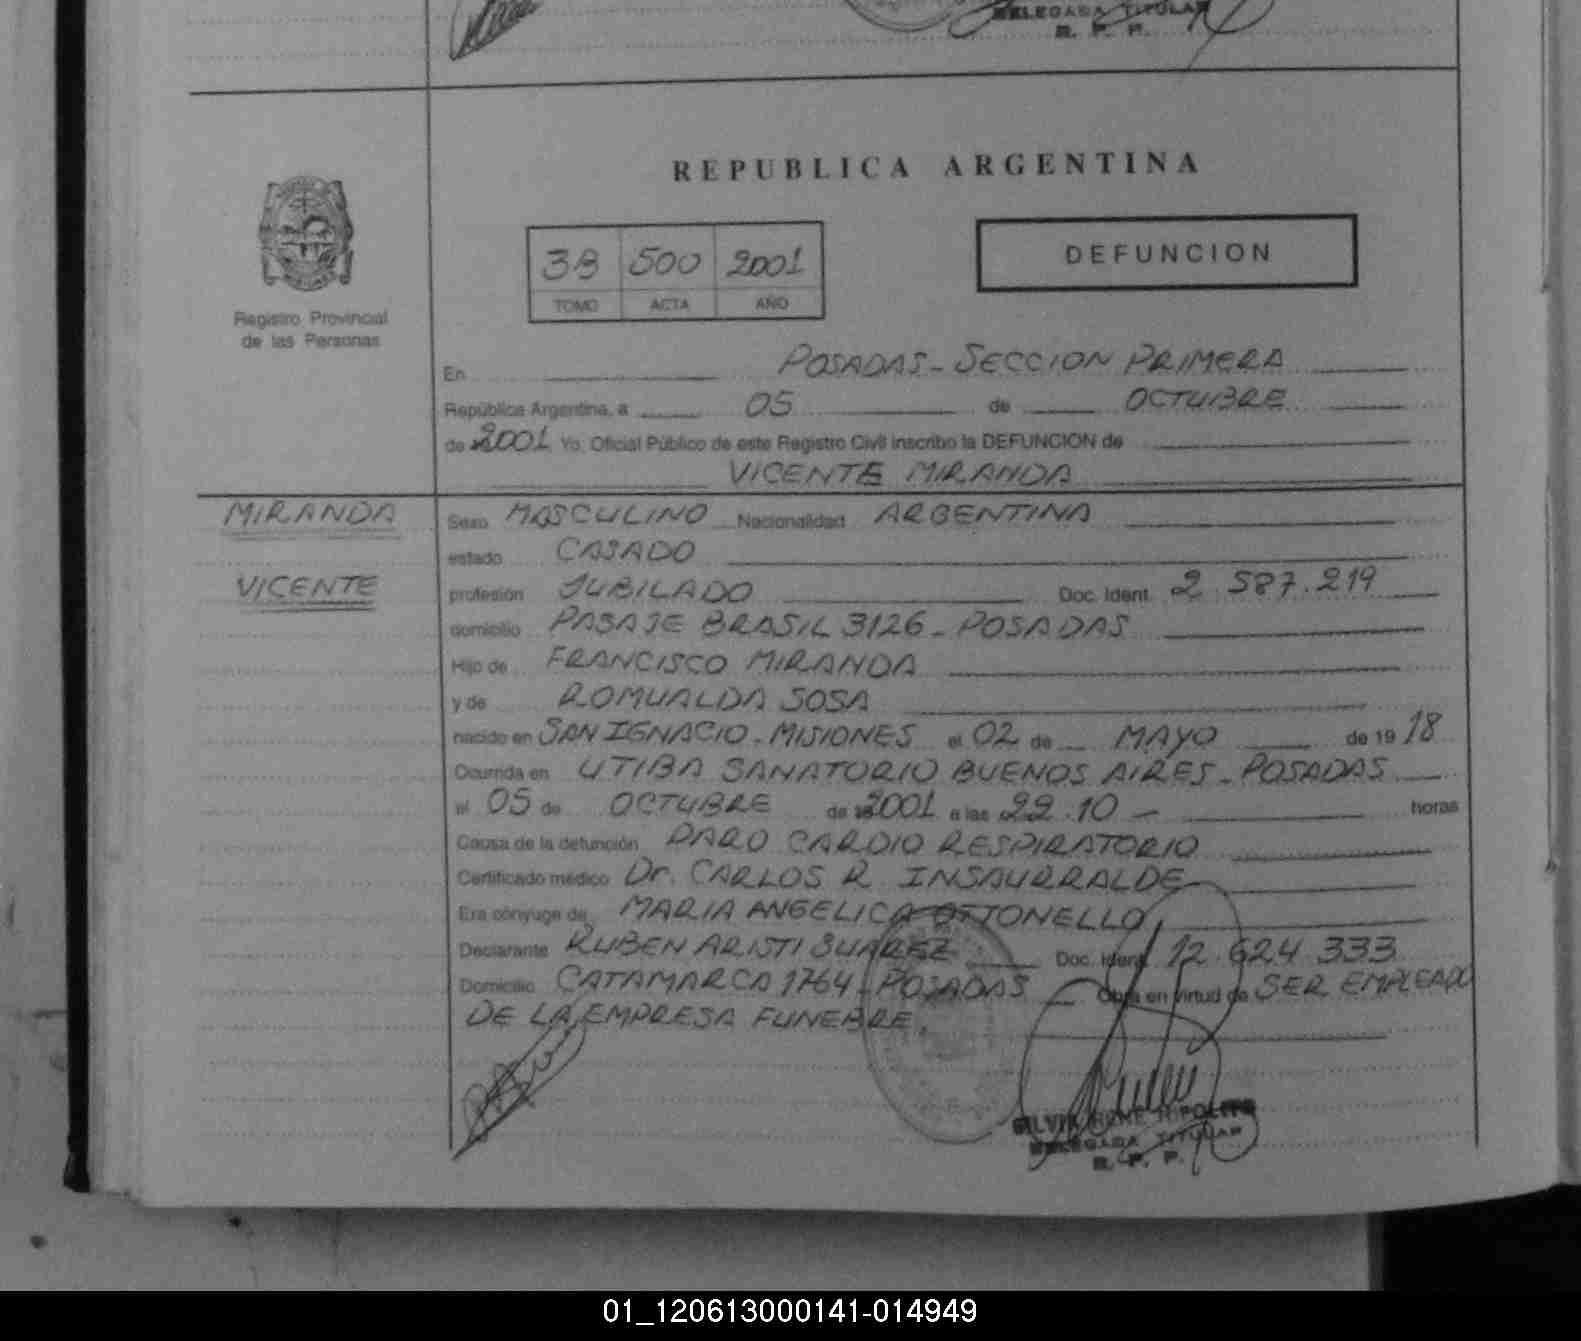 DELEGADA TITULAR
R. P. P.
REPUBLICA ARGENTINA
3B 500 2001
TOMO ACTA AÑO
DEFUNCION
Registro Provincial
de las Personas
En POSADAS - SECCION PRIMERA
República Argentina, a 05 de OCTUBRE
de 2001 Yo, Oficial Público de este Registro Civil inscribo la DEFUNCION de
VICENTE MIRANDA
MIRANDA
VICENTE
Sexo MASCULINO Nacionalidad ARGENTINA
estado CASADO
profesión JUBILADO Doc. Ident. 2.587.219
domicilio PASAJE BRASIL 3126 - POSADAS
Hijo de FRANCISCO MIRANDA
y de ROMUALDA SOSA
nacido en SAN IGNACIO - MISIONES el 02 de MAYO de 1918
Ocurrida en UTIBA SANATORIO BUENOS AIRES - POSADAS
el 05 de OCTUBRE de 2001 a las 22.10 - horas
Causa de la defunción PARO CARDIO RESPIRATORIO
Certificado médico Dr. CARLOS R. INSAURRALDE
Era cónyuge de MARIA ANGELICA OTTONELLO
Declarante RUBEN ARISTI SUAREZ Doc. Ident. 12.624.333
Domicilio CATAMARCA 1764 - POSADAS Obra en virtud de SER EMPLEADO
DE LA EMPRESA FUNEBRE.
SILVIA RENE HIPOLITO
DELEGADA TITULAR
R. P. P.
01_120613000141-014949